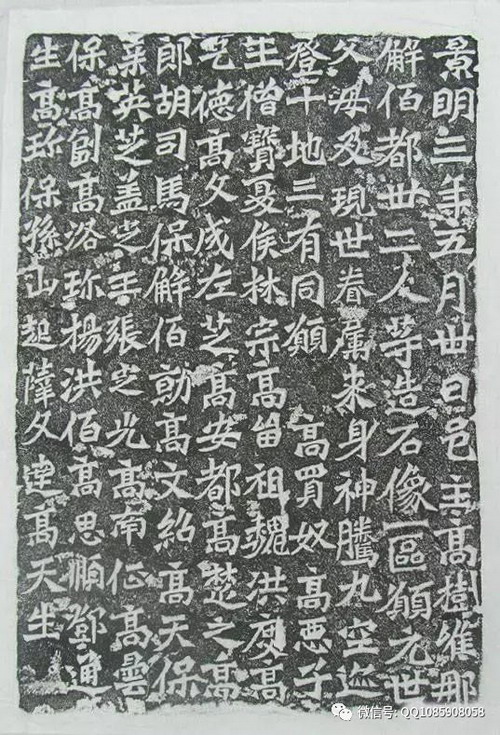 景明三年五月卅日邑主高樹維那
解佰都卅二人等造石像一區願元世
父母及現世眷屬來身神騰九空迹
登十地三有同願 高買奴 高惡子
王僧寶夏侯林宗高留祖魏洪度高
乞德高文成左芝高安都高楚之高
郎胡司馬保解佰勍高文紹高天保
秦英芝蓋芝王張芝光高南征高曇
保高副高洛珍楊洪佰高思順鄧通
生高珍保孫山起薛文達高天生
微信号: QQ1085908058